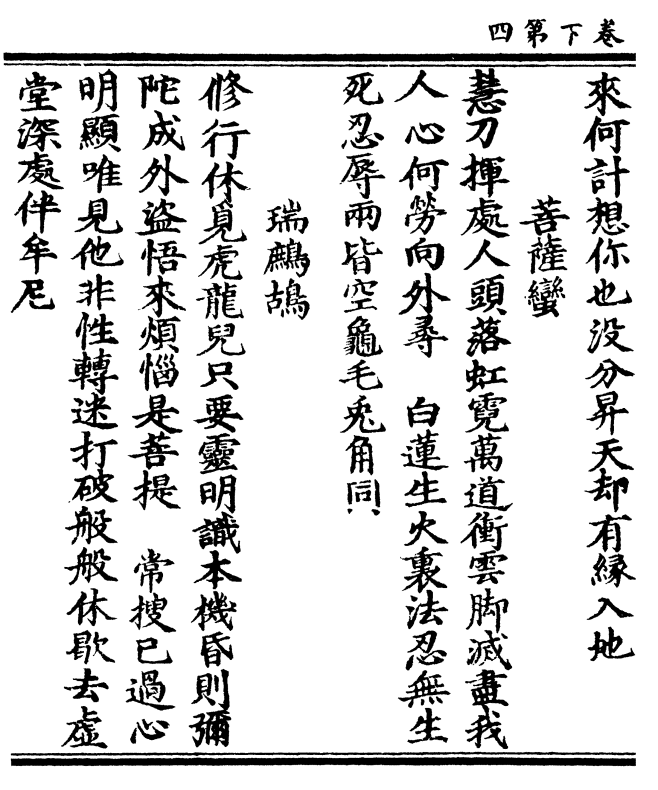 卷下第四
來何計想你也没分昇天却有緣入地
菩薩蠻
慧刀揮處人頭落虹霓萬道衝雲脚滅盡我
人心何勞向外尋　白蓮生火裏法忍無生
死忍辱兩皆空龜毛兎角同
瑞鷓鴣
修行休覓虎龍兒只要靈明識本機昏則彌
陀成外盜悟來煩惱是菩提　常搜已過心
明顯唯見他非性轉迷打破般般休歇去虛
堂深處伴牟尼